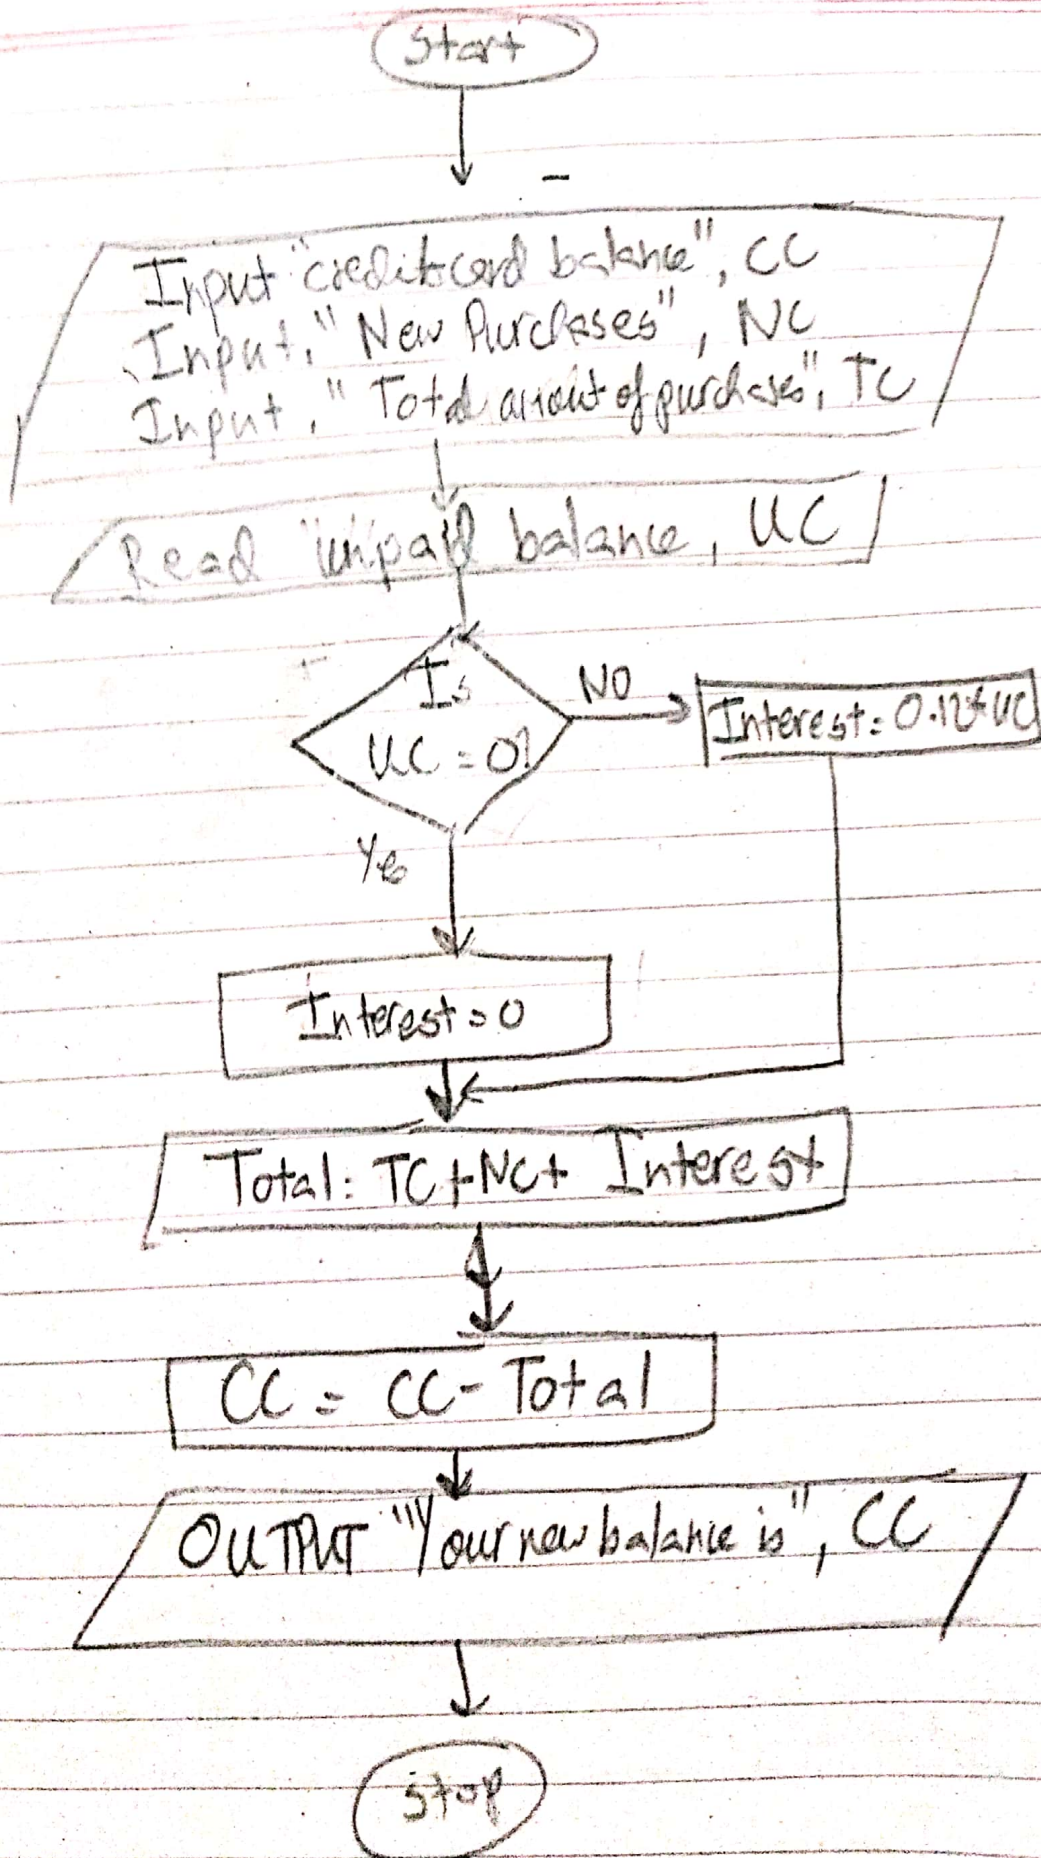 Start
Input "credit card balance", CC
Input, "New Purchases", NC
Input, "Total amount of purchases", TC
Read "unpaid balance, UC
Is
UC = 0?
NO
Interest = 0.12 * UC
Yes
Interest = 0
Total: TC + NC + Interest
CC = CC - Total
OUTPUT "Your new balance is", CC
Stop